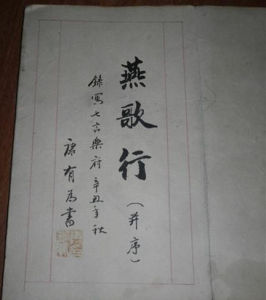 燕歌行(并序)
錄寫七言樂府辛丑年秋
康有為書